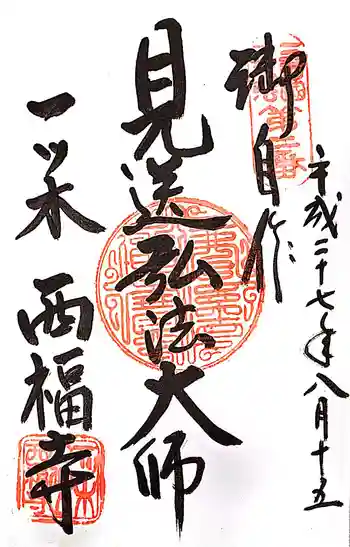 平成二十七年八月十五
御自作
見送弘法大師
一ツ木 西福寺